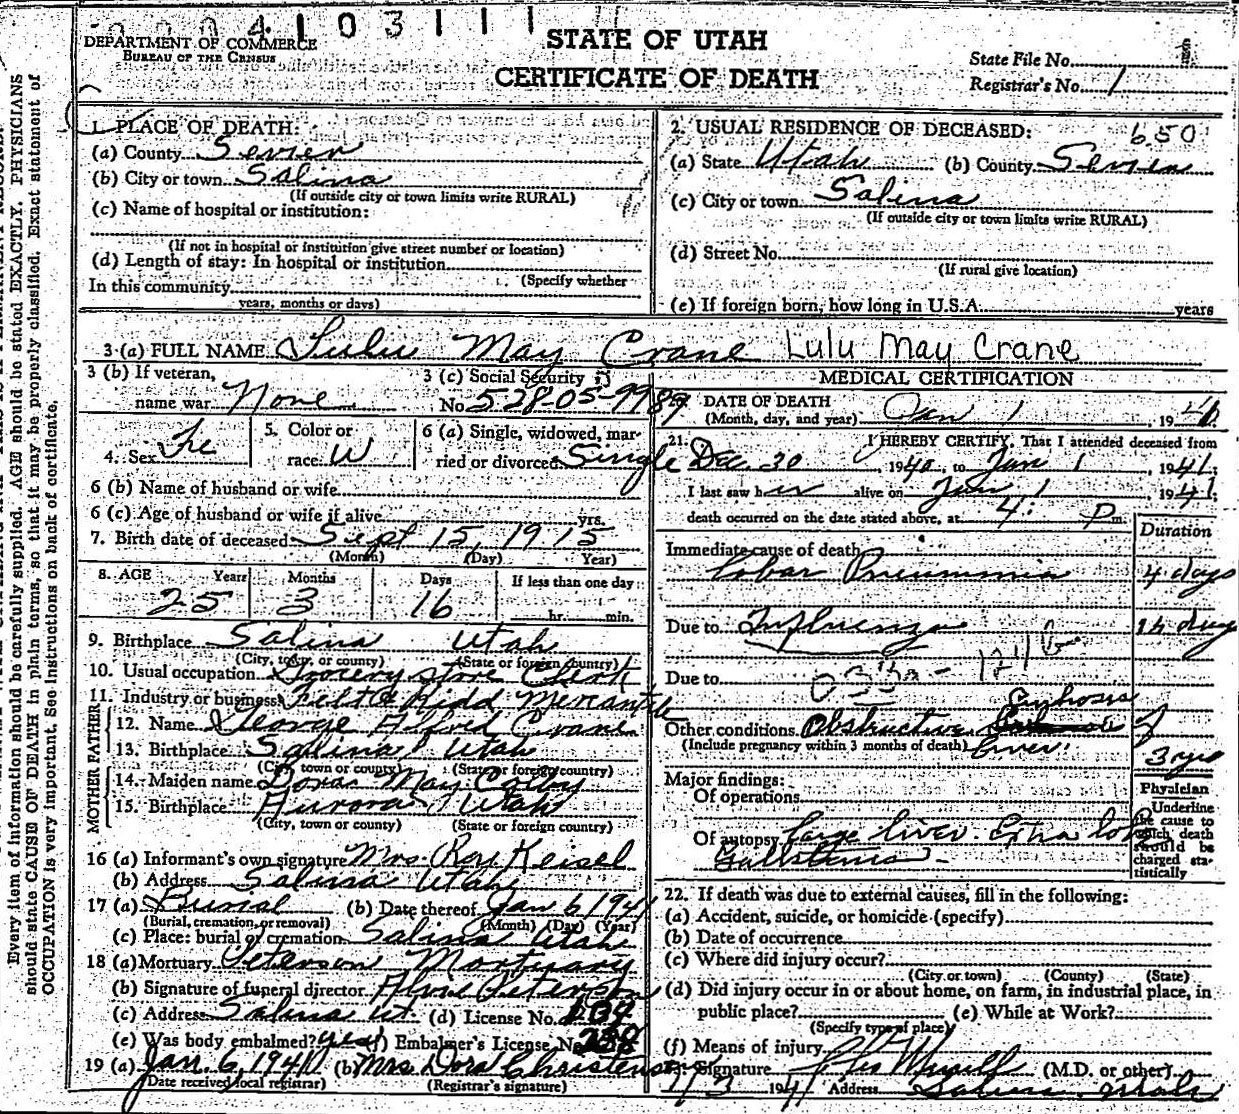 0004103111
DEPARTMENT OF COMMERCE
BUREAU OF THE CENSUS
STATE OF UTAH
CERTIFICATE OF DEATH
State File No. 1
Registrar's No. 1
1. PLACE OF DEATH:
(a) County Sevier
(b) City or town Salina
(If outside city or town limits write RURAL)
(c) Name of hospital or institution:
(If not in hospital or institution give street number or location)
(d) Length of stay: In hospital or institution
(Specify whether
In this community
years, months or days)
2. USUAL RESIDENCE OF DECEASED: 650
(a) State Utah (b) County Sevier
(c) City or town Salina
(If outside city or town limits write RURAL)
(d) Street No.
(If rural give location)
(e) If foreign born, how long in U.S.A. years
3 (a) FULL NAME Lulu May Crane Lulu May Crane
3 (b) If veteran,
name war None
3 (c) Social Security
No. 528-05-9989
4. Sex Fe
5. Color or
race W
6 (a) Single, widowed, mar-
ried or divorced Single
6 (b) Name of husband or wife
6 (c) Age of husband or wife if alive yrs.
7. Birth date of deceased Sept 15, 1915
(Month) (Day) Year)
8. AGE Years Months Days If less than one day
25 3 16 hr. min.
9. Birthplace Salina Utah
(City, town, or county) (State or foreign country)
10. Usual occupation Grocery store Clerk
11. Industry or business Felt & Kidd Mercantile
FATHER
12. Name George Alfred Crane
13. Birthplace Salina Utah
(City, town or county) (State or foreign country)
MOTHER
14. Maiden name Dora May Colby
15. Birthplace Aurora Utah
(City, town or county) (State or foreign country)
16 (a) Informant's own signature Mrs Roy Keisel
(b) Address Salina Utah
17 (a) Burial (b) Date thereof Jan 6 1941
(Burial, cremation, or removal) (Month) (Day) (Year)
(c) Place: burial or cremation Salina Utah
18 (a) Mortuary Peterson Mortuary
(b) Signature of funeral director Peterson
(c) Address Salina Ut. (d) License No. 134
(e) Was body embalmed? yes (f) Embalmer's License No. 238
19 (a) Jan. 6, 1941 (b) Mrs Dora Christensen
Date received local registrar) (Registrar's signature)
MEDICAL CERTIFICATION
DATE OF DEATH
(Month, day, and year) Jan 1, 194
21. I HEREBY CERTIFY, That I attended deceased from
Dec. 30 1940, to Jan 1, 1941;
I last saw her alive on Jan 1 1941;
death occurred on the date stated above, at 4: P m.
Duration
Immediate cause of death
Lobar Pneumonia 4 days
Due to Influenza 14 days
Due to
Other conditions Obstructive Cyrhosis of
(Include pregnancy within 3 months of death) liver. 3 yrs
Major findings:
Of operations
Of autopsy large liver. Extra lobe
Gallstones
Physician
Underline
the cause to
which death
should be
charged sta-
tistically
22. If death was due to external causes, fill in the following:
(a) Accident, suicide, or homicide (specify)
(b) Date of occurrence
(c) Where did injury occur?
(City or town) (County) (State)
(d) Did injury occur in or about home, on farm, in industrial place, in
public place? (e) While at Work?
(Specify type of place)
(f) Means of injury
Signature (M.D. or other)
1/3 1941 Address Salina Utah
Every item of information should be carefully supplied. AGE should be stated EXACTLY. PHYSICIANS
should state CAUSE OF DEATH in plain terms, so that it may be properly classified. Exact statement of
OCCUPATION is very important. See instructions on back of certificate.